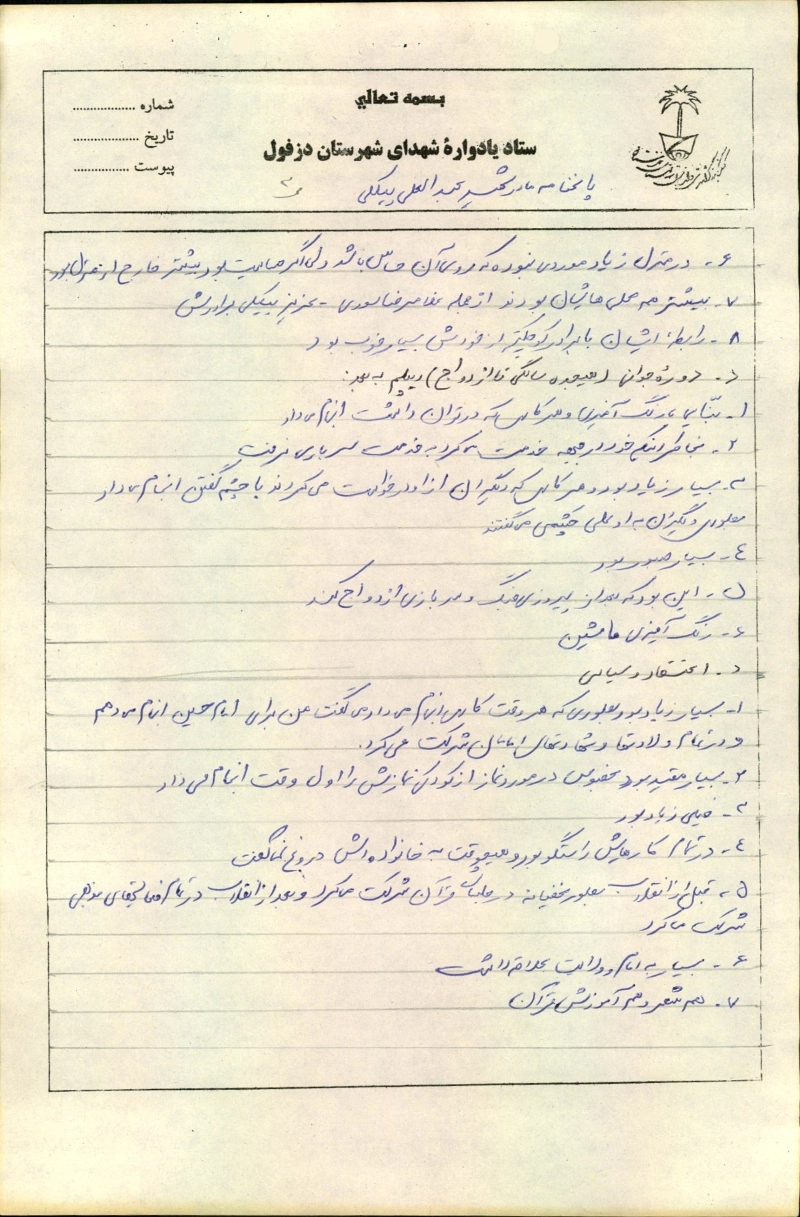 بسمه تعالي
ستاد یادوارهٔ شهدای شهرستان دزفول
شماره ..................
تاریخ ...................
پیوست ................
پاسخنامه مادر شهید عبدالعلی پیکلی
۶- در منزل زیاد موردی نبوده که روی آن حساس باشد ولی اگر حساسیت بود بیشتر خارج از منزل بود
۷- بیشتر هم محلی هایشان بودند از جمله غلامرضا سعدی - عزیز پیکلی برادرش
۸- رابطهٔ ایشان با برادر کوچکتر از خودش بسیار خوب بود
د- دورهٔ جوانی (هیجده سالگی تا ازدواج) دیپلم به بعد:
۱- بنّایی یا رنگ آمیزی و هر کاری که در توان داشت انجام می داد
۲- بخاطر اینکه خود در جبهه خدمت می کرد به خدمت سربازی نرفت
۳- بسیار زیاد بود و هر کاری که دیگران از او درخواست می کردند با چشم گفتن انجام می داد
بطوری دیگران به او علی چشمی می گفتند
٤- بسیار صبور بود
۵- این بود که بعد از پیروزی جنگ و سربازی ازدواج کند
۶- رنگ آمیزی ماشین
د- اعتقاد و سیاسی
۱- بسیار زیاد بود بطوری که هر وقت کاری انجام می داد می گفت من برای امام حسین انجام می دهم
و در تمام ولادتها و شهادتهای امامان شرکت می کرد.
۲- بسیار مقید بود بخصوص در مورد نماز از کودکی نمازش را اول وقت انجام می داد
۳- خیلی زیاد بود
٤- در تمام کارهایش راستگو بود و هیچوقت به خانواده اش دروغ نمی گفت
۵- قبل از انقلاب بطور مخفیانه در جلسات قرآن شرکت می کرد و بعد از انقلاب در تمام فعالیتهای مذهبی
شرکت می کرد
۶- بسیار به امام و ولایت علاقه داشت
۷- هم شعر و هم آموزش قرآن